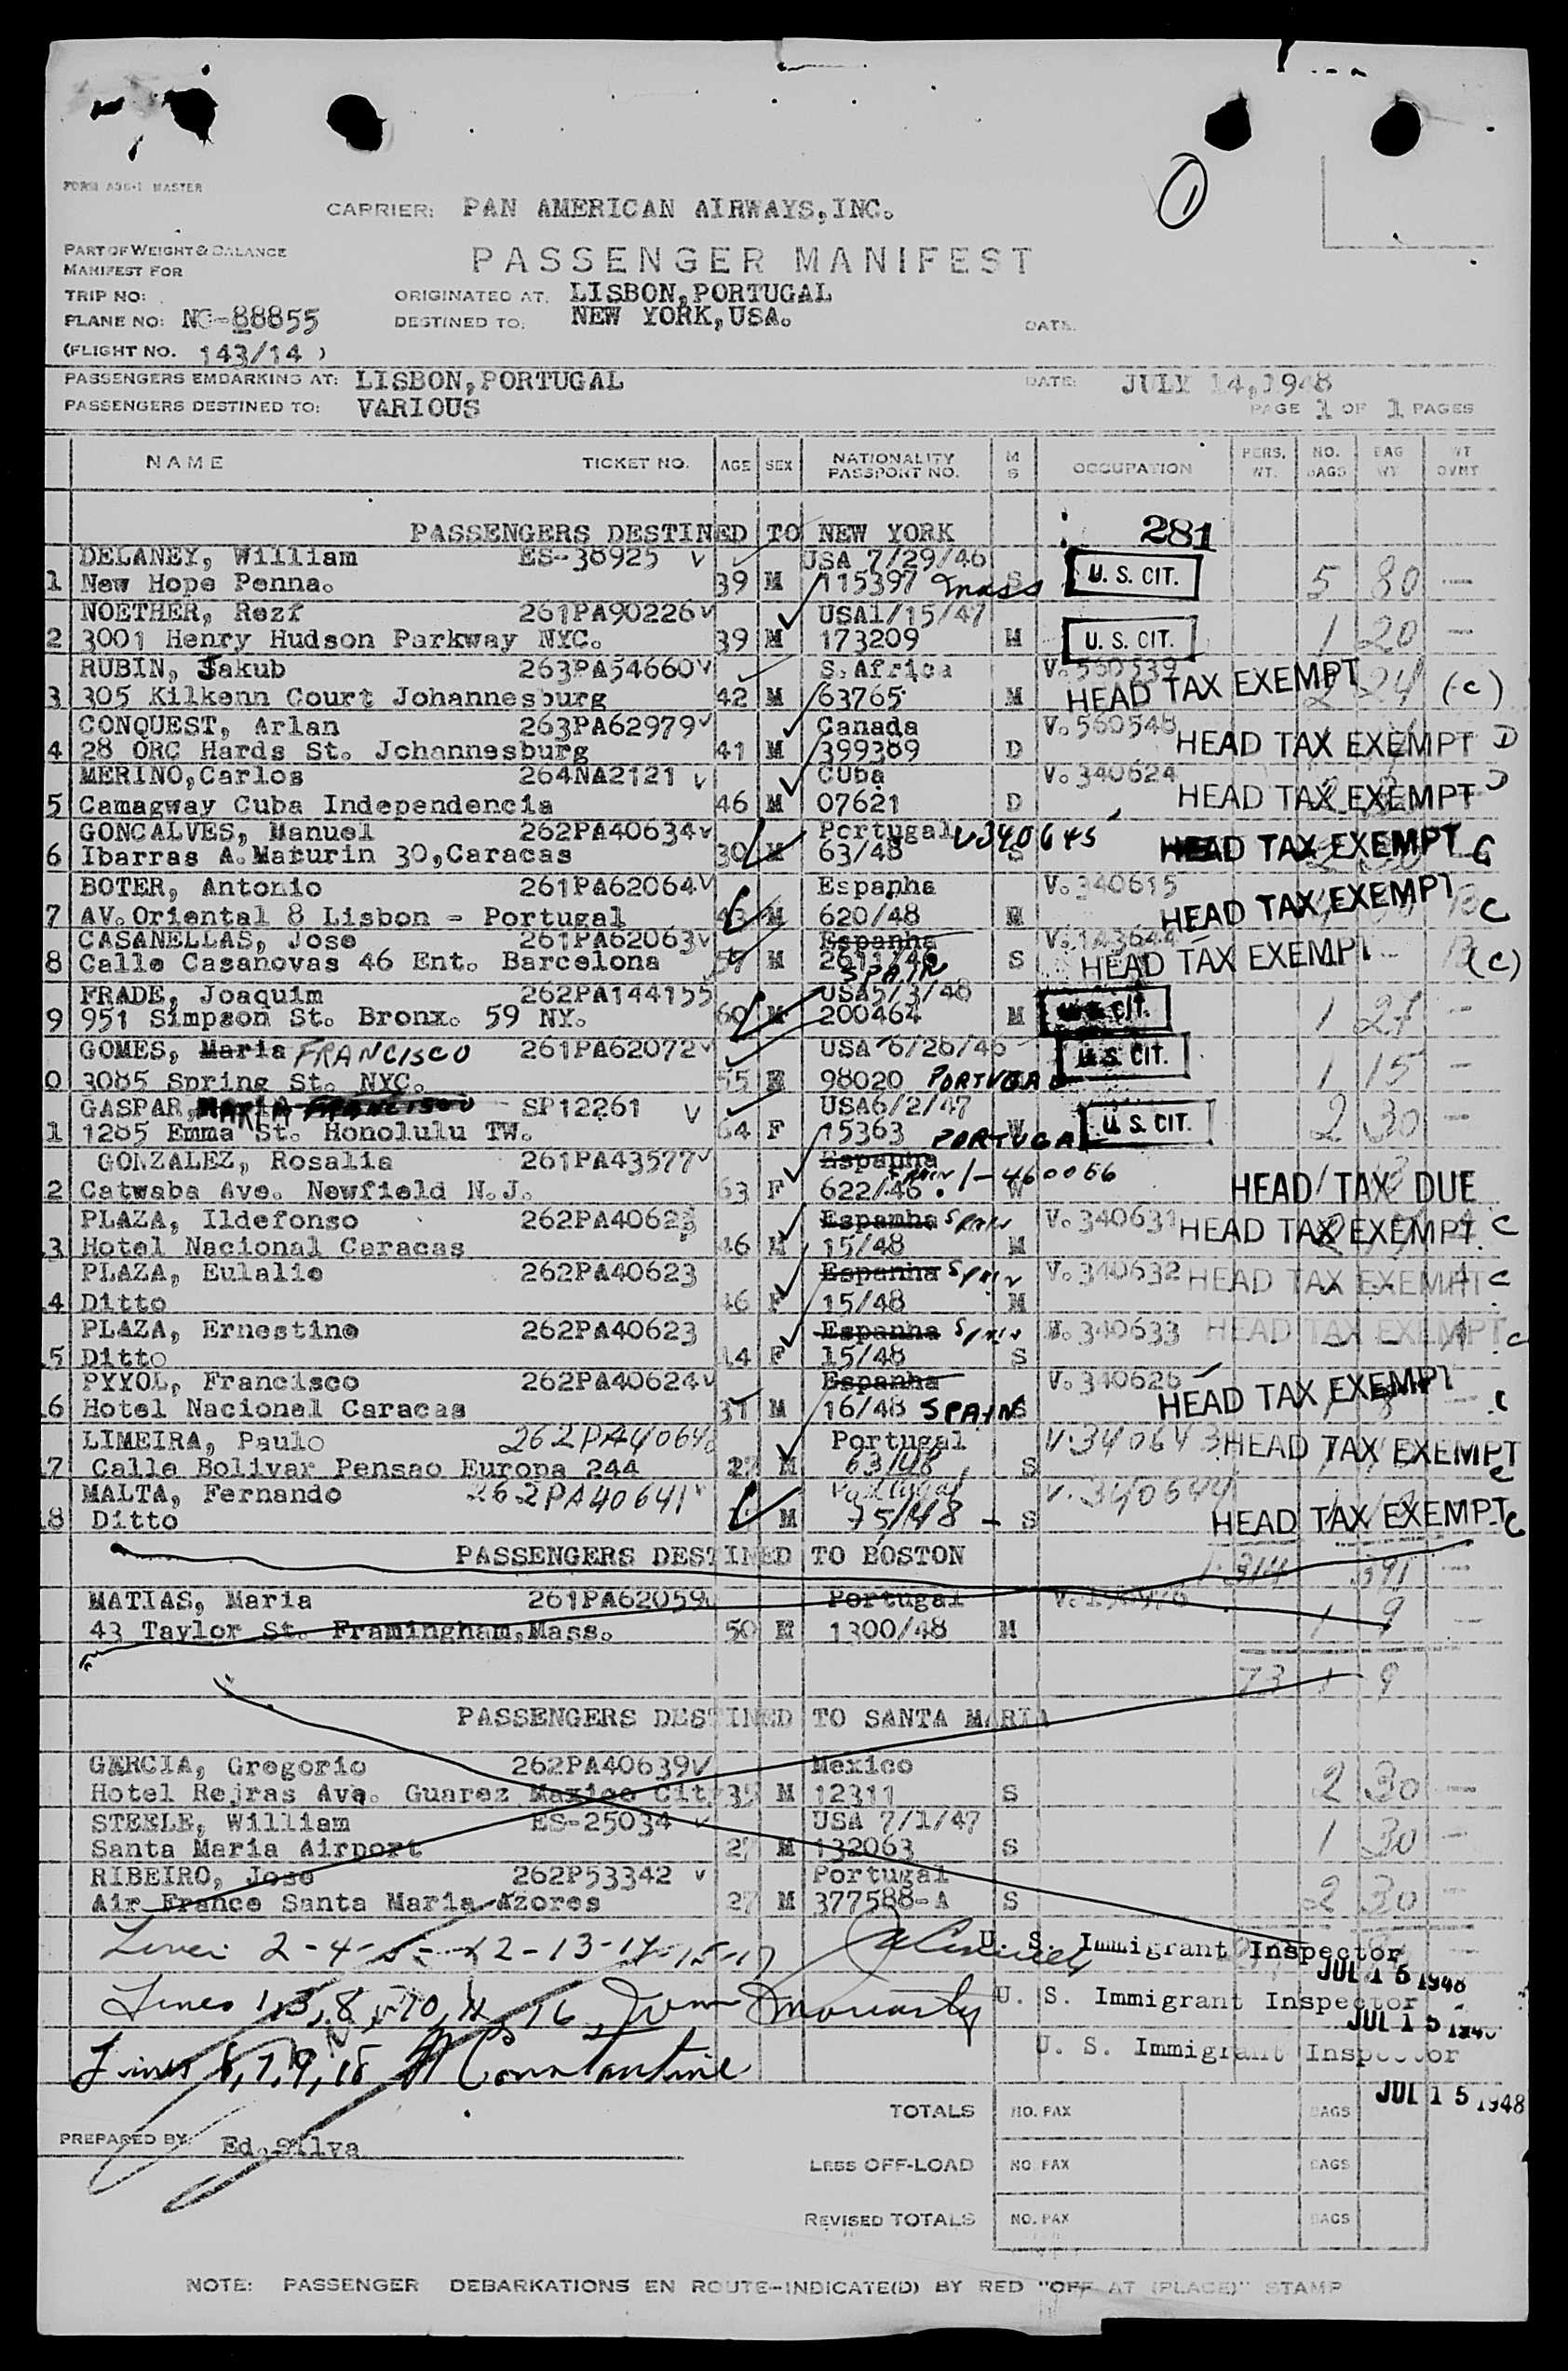 ①
FORM A36-1 MASTER
CARRIER: PAN AMERICAN AIRWAYS, INC.
PART OF WEIGHT & BALANCE
MANIFEST FOR
PASSENGER MANIFEST
TRIP NO:
ORIGINATED AT. LISBON, PORTUGAL
PLANE NO: NC-88855
DESTINED TO: NEW YORK, USA.
DATE:
(FLIGHT NO. 143/14 )
PASSENGERS EMBARKING AT: LISBON, PORTUGAL DATE: JULY 14, 1948
PASSENGERS DESTINED TO: VARIOUS PAGE 1 OF 1 PAGES
NAME TICKET NO. AGE SEX NATIONALITY PASSPORT NO. M S OCCUPATION PERS. WT. NO. BAGS BAG WT. WT OVNT
PASSENGERS DESTINED TO NEW YORK 281
DELANEY, William ES-38925 USA 7/29/46
1 New Hope Penna. 39 M 115397 Mass S U. S. CIT. 5 80 -
NOETHER, Rezf 261PA90226 USA1/15/47
2 3001 Henry Hudson Parkway NYC. 39 M 173209 M U. S. CIT. 1 20 -
RUBIN, Jakub 263PA54660 S. Africa V. 560539
3 305 Kilkenn Court Johannesburg 42 M 63765 M HEAD TAX EXEMPT 24 (C)
CONQUEST, Arlan 263PA62979 Canada V. 560548
4 28 ORC Hards St. Johannesburg 41 M 399389 D HEAD TAX EXEMPT D
MERINO, Carlos 264NA2121 Cuba V. 340624
5 Camagway Cuba Independencia 46 M 07621 D HEAD TAX EXEMPT D
GONCALVES, Manuel 262PA40634 Portugal V340645
6 Ibarras A. Maturin 30, Caracas 30 M 63/48 S HEAD TAX EXEMPT C
BOTER, Antonio 261PA62064 Espanha V. 340615
7 AV. Oriental 8 Lisbon - Portugal 43 M 620/48 M HEAD TAX EXEMPT C
CASANELLAS, Jose 261PA62063 Espanha V. 143644
8 Calle Casanovas 46 Ent. Barcelona 57 M 2611/46 SPAIN S HEAD TAX EXEMPT (C)
FRADE, Joaquim 262PA144155 USA5/3/48
9 951 Simpson St. Bronx. 59 NY. 60 M 200464 M U. S. CIT. 1 27 -
GOMES, Maria FRANCISCO 261PA62072 USA 6/26/46
0 3085 Spring St. NYC. 55 98020 PORTUGAL U. S. CIT. 1 15 -
GASPAR, MARIA FRANCISCO SP12261 USA6/2/47
1 1285 Emma St. Honolulu TW. 64 F 15363 PORTUGAL W U. S. CIT. 2 30 -
GONZALEZ, Rosalia 261PA43577 Espanha SPAIN 1-460066
2 Catwaba Ave. Newfield N.J. 63 F 622/46 W HEAD TAX DUE
PLAZA, Ildefonso 262PA40623 Espamha SPAIN V. 340631
3 Hotel Nacional Caracas 46 M 15/48 M HEAD TAX EXEMPT C
PLAZA, Eulalie 262PA40623 Espanha SPAIN V. 340632
4 Ditto 46 F 15/48 M HEAD TAX EXEMPT C
PLAZA, Ernestine 262PA40623 Espanha SPAIN V. 340633
5 Ditto 14 F 15/48 S HEAD TAX EXEMPT C
PYYOL, Francisco 262PA40624 Espanha V. 340626
16 Hotel Nacional Caracas 31 M 16/48 SPAIN S HEAD TAX EXEMPT C
LIMEIRA, Paulo 262PA40640 Portugal V. 340643
7 Calle Bolivar Pensao Europa 244 27 M 63/48 S HEAD TAX EXEMPT C
MALTA, Fernando 262PA40641 Portugal V. 340644
18 Ditto M 75/48 - S HEAD TAX EXEMPT C
PASSENGERS DESTINED TO BOSTON 1.314 391 -
MATIAS, Maria 261PA62059 Portugal
43 Taylor St. Framingham, Mass. 50 1300/48 M 1 9 -
73 1 9
PASSENGERS DESTINED TO SANTA MARIA
GARCIA, Gregorio 262PA40639 Mexico
Hotel Rejras Ave. Guarez Mexico Cit. 35 M 12311 S 2 30 -
STEELE, William ES-25034 USA 7/1/47
Santa Maria Airport 27 M 132063 S 1 30 -
RIBEIRO, Jose 262P53342 Portugal
Air France Santa Maria Azores 27 M 377588-A S 2 30 -
Lines 2-4-5-12-13-14-15-17 U. S. Immigrant Inspector
JUL 15 1948
Lines 1,3,8,10,11,16 Moriarty U. S. Immigrant Inspector
JUL 15 1948
Lines 6,7,9,18 Constantine U. S. Immigrant Inspector
JUL 15 1948
TOTALS NO. PAX BAGS
PREPARED BY: Ed. Silva
LESS OFF-LOAD NO PAX BAGS
REVISED TOTALS NO. PAX BAGS
NOTE: PASSENGER DEBARKATIONS EN ROUTE-INDICATE(D) BY RED "OFF AT (PLACE)" STAMP